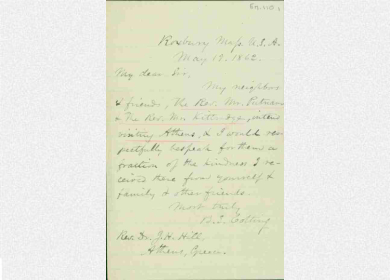 Roxbury Mass. U.S.A.
May 12, 1862.
My dear Sir,
My neighbors
& friends, the Rev. Mr. Putnam
& the Rev. Mr. intend
visiting Athens, & I would res-
pectfully bespeak for them a
fraction of the kindness I re-
ceived there from yourself &
family & other friends.
Most truly,
Rev. Dr. J. H. Hill,
Athens, Greece.